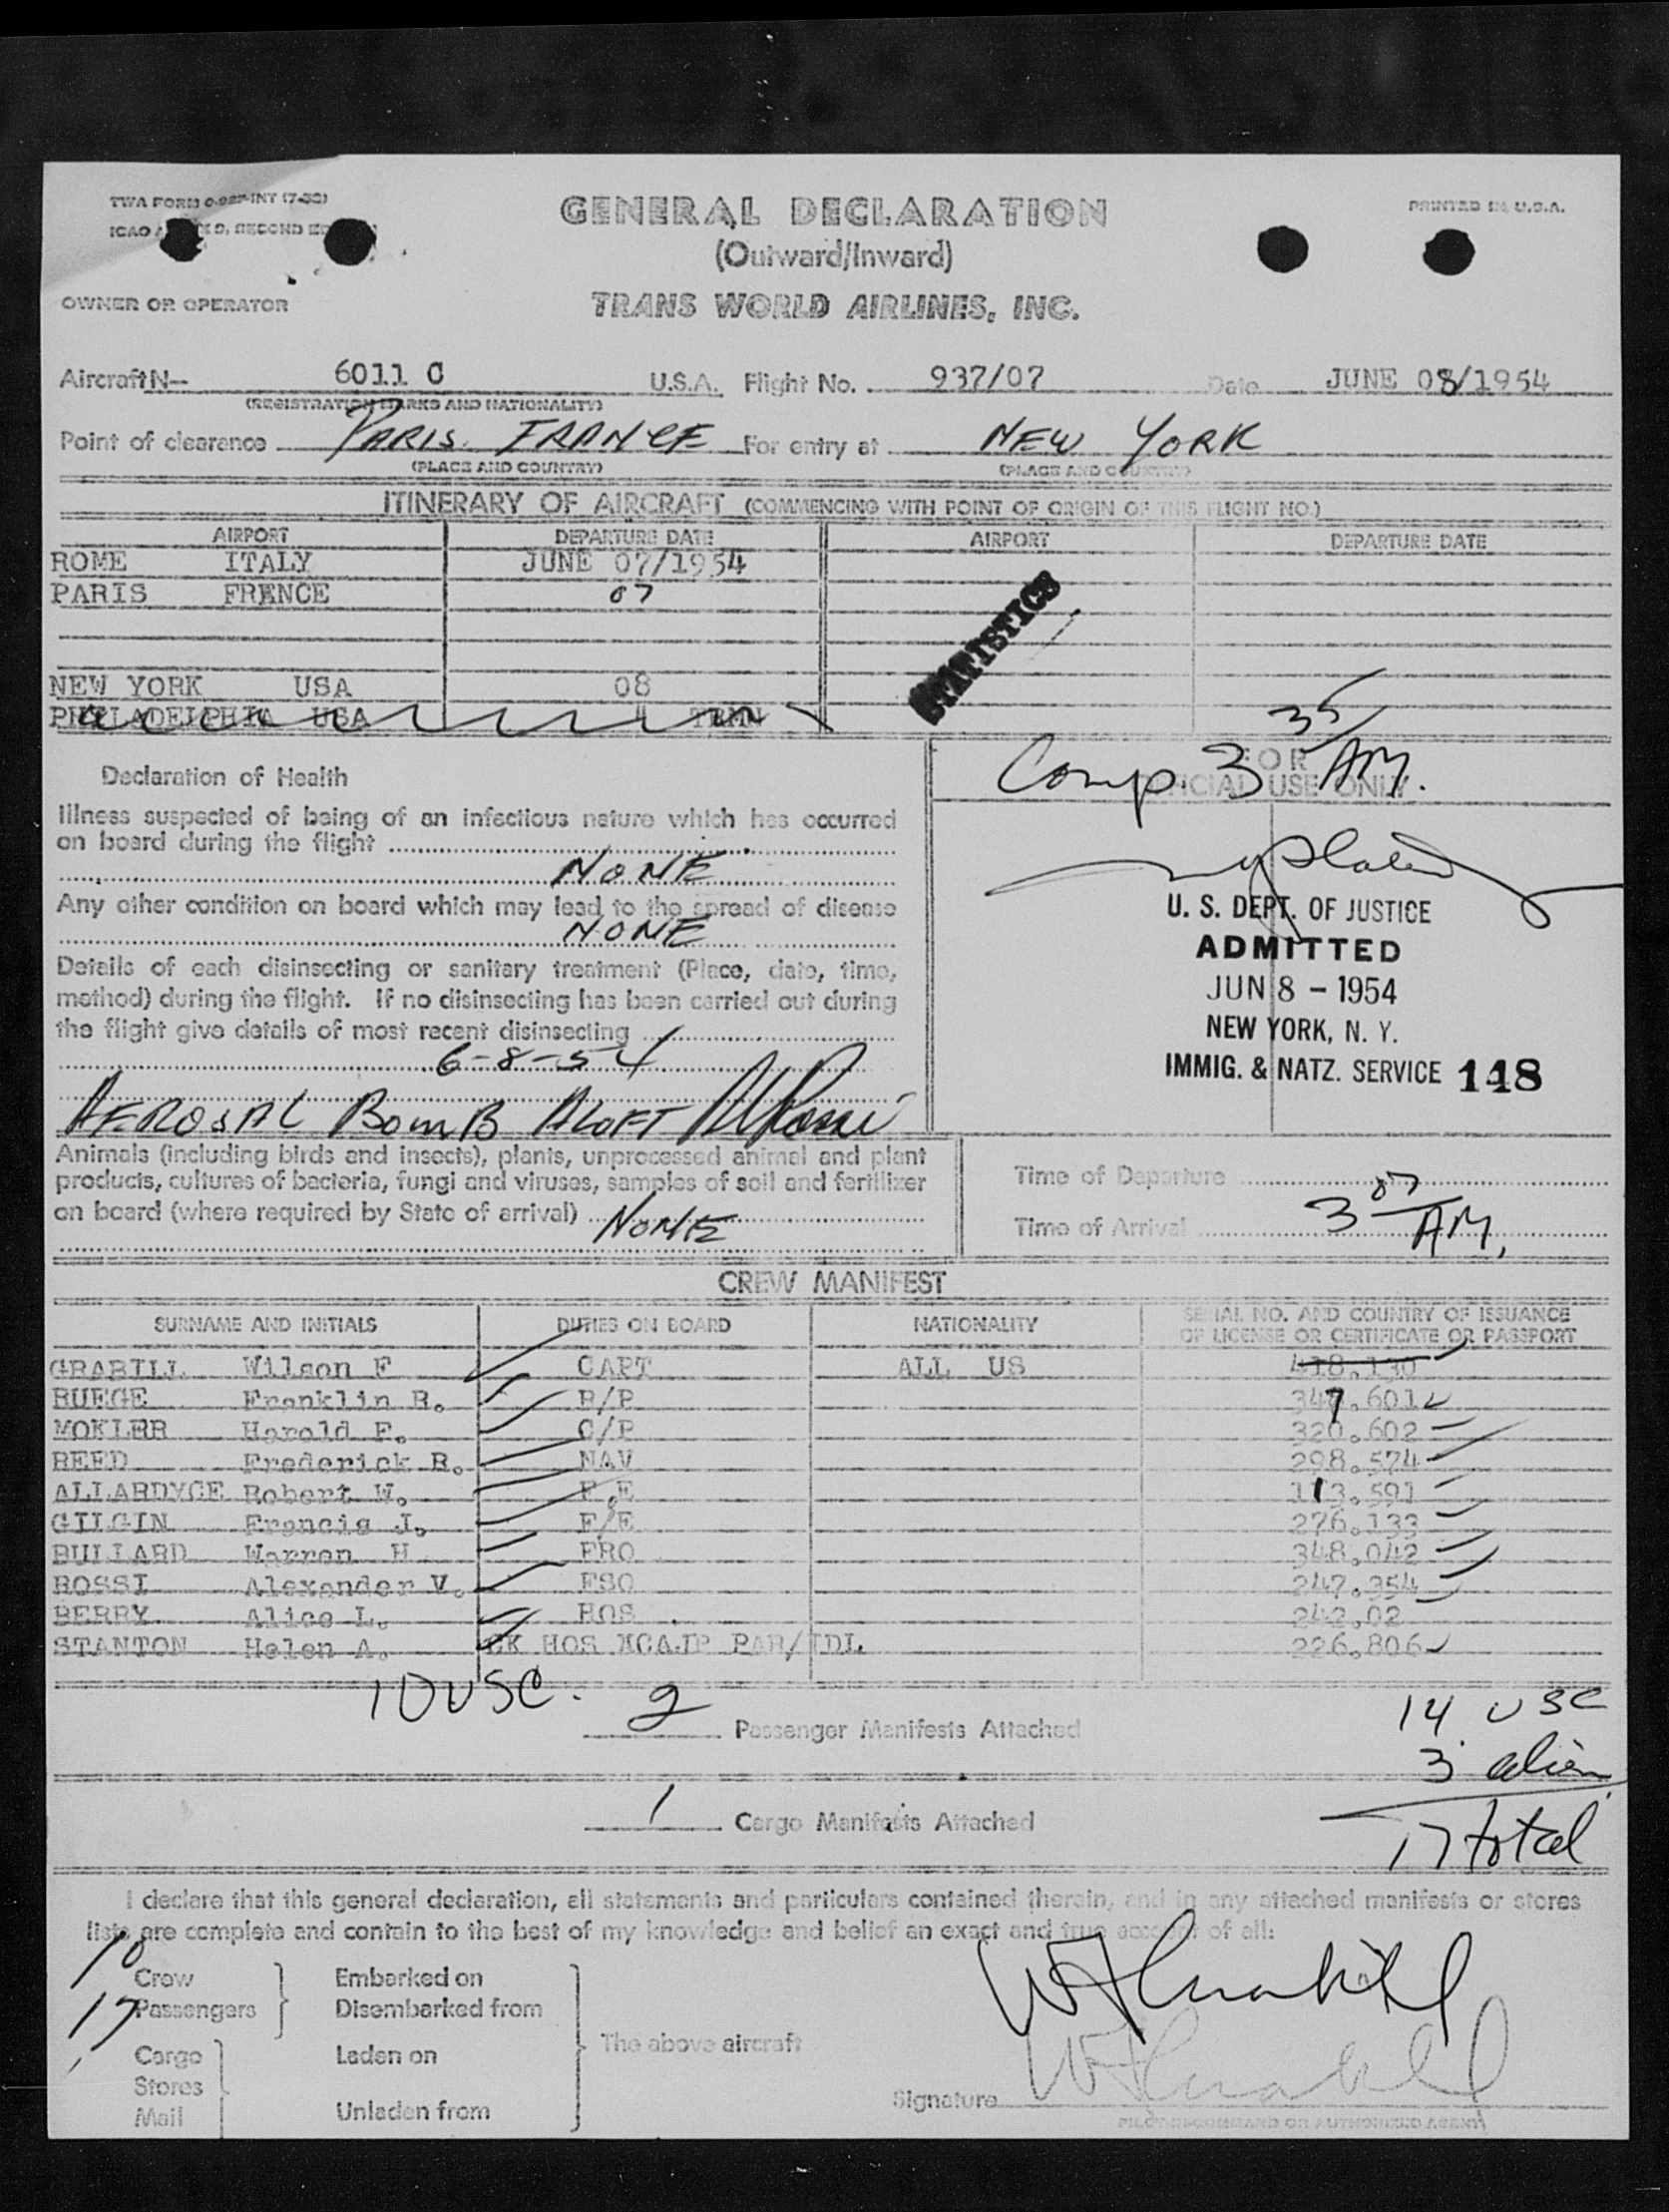 TWA FORM INT (7-52)
PRINTED IN U.S.A.
ICAO D, SECOND
GENERAL DECLARATION
(Outward/Inward)
OWNER OR OPERATOR
TRANS WORLD AIRLINES, INC.
Aircraft N- 6011 C U.S.A. Flight No. 937/07 Date JUNE 08/1954
(REGISTRATION MARKS AND NATIONALITY)
Point of clearance PARIS. FRANCE For entry at NEW YORK
(PLACE AND COUNTRY) (PLACE AND COUNTRY)
ITINERARY OF AIRCRAFT (COMMENCING WITH POINT OF ORIGIN OF THIS FLIGHT NO.)
AIRPORT DEPARTURE DATE AIRPORT DEPARTURE DATE
ROME ITALY JUNE 07/1954
PARIS FRENCE 07
STATISTICS
NEW YORK USA 08
PHILADELPHIA USA " TRMN
Comp. 3 35/ AM.
FOR
OFFICIAL USE ONLY
Declaration of Health
Illness suspected of being of an infectious nature which has occurred
on board during the flight
NONE
Any other condition on board which may lead to the spread of disease
NONE
Details of each disinsecting or sanitary treatment (Place, date, time,
method) during the flight. If no disinsecting has been carried out during
the flight give details of most recent disinsecting
6-8-54
AEROSAL BOMB ALOFT
U. S. DEPT. OF JUSTICE
ADMITTED
JUN 8 - 1954
NEW YORK, N. Y.
IMMIG. & NATZ. SERVICE 148
Animals (including birds and insects), plants, unprocessed animal and plant
products, cultures of bacteria, fungi and viruses, samples of soil and fertilizer
on board (where required by State of arrival) NONE
Time of Departure
Time of Arrival 3 07 AM.
CREW MANIFEST
SURNAME AND INITIALS DUTIES ON BOARD NATIONALITY SERIAL NO. AND COUNTRY OF ISSUANCE
OF LICENSE OR CERTIFICATE OR PASSPORT
GRABILL Wilson F CAPT ALL US 418.130
RUEGE Franklin R. R/P 347.601
MOKLER Harold F. C/P 320.602
REED Frederick R. NAV 298.574
ALLARDYCE Robert W. F.E 113.591
GILGIN Francis J. F/E 276.133
BULLARD Warren H FRO 348.042
ROSSI Alexander V. FSO 247.354
BERRY Alice L. HOS 242.02
STANTON Helen A. CK HOS XCAJP PAR/IDL 226.806
10 USC.
2 Passenger Manifests Attached
14 USC
3 alien
1 Cargo Manifests Attached
17 total
I declare that this general declaration, all statements and particulars contained therein, and in any attached manifests or stores
lists are complete and contain to the best of my knowledge and belief an exact and true account of all:
10 Crew Embarked on
17 Passengers Disembarked from
The above aircraft
Cargo Laden on
Stores
Mail Unladen from
Signature
PILOT IN COMMAND OR AUTHORIZED AGENT